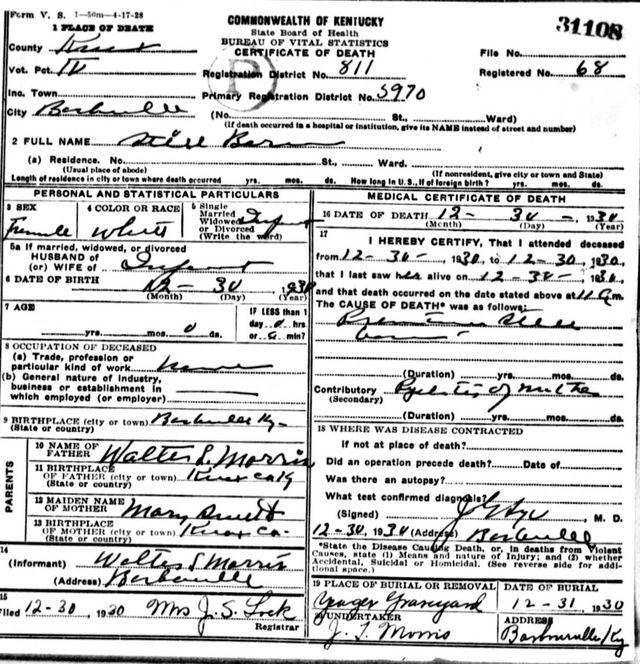 Form V. S. 1—50m—4-17-28
COMMONWEALTH OF KENTUCKY
State Board of Health
BUREAU OF VITAL STATISTICS
CERTIFICATE OF DEATH
31108
1 PLACE OF DEATH
County Knox
File No.
Vot. Pct. IV
Registration District No. 811
Registered No. 68
Inc. Town
Primary Registration District No. 5970
City Barbourville (No. St., Ward)
(If death occurred in a hospital or institution, give its NAME instead of street and number)
2 FULL NAME Still Born
(a) Residence. No. St., Ward.
(Usual place of abode) (If nonresident, give city or town and State)
Length of residence in city or town where death occurred yrs. mos. ds. How long in U. S., if of foreign birth? yrs. mos. ds.
PERSONAL AND STATISTICAL PARTICULARS
3 SEX Female
4 COLOR OR RACE White
5 Single Married Widowed or Divorced (Write the word) Infant
5a If married, widowed, or divorced
HUSBAND of
(or) WIFE of Infant
6 DATE OF BIRTH 12 - 30, 1930
(Month) (Day) (Year)
7 AGE
yrs. mos. 0 ds.
IF LESS than 1 day 0 hrs. or 0 min?
8 OCCUPATION OF DECEASED
(a) Trade, profession or particular kind of work None
(b) General nature of industry, business or establishment in which employed (or employer)
9 BIRTHPLACE (city or town) Barbourville Ky-
(State or country)
PARENTS
10 NAME OF FATHER Walter S. Morris
11 BIRTHPLACE OF FATHER (city or town) Knox Co Ky
(State or country)
12 MAIDEN NAME OF MOTHER Mary
13 BIRTHPLACE OF MOTHER (city or town) Knox Co-
(State or country)
14
(Informant) Walter S Morris
(Address) Barbourville
15
Filed 12-30, 1930 Mrs J. S. Lock
Registrar
MEDICAL CERTIFICATE OF DEATH
16 DATE OF DEATH 12 - 30 -, 1930
(Month) (Day) (Year)
17
I HEREBY CERTIFY, That I attended deceased
from 12-30-, 1930, to 12-30, 1930,
that I last saw her alive on 12-30-, 1930,
and that death occurred on the date stated above at 11 a m.
The CAUSE OF DEATH* was as follows:
Premature Still
born
(Duration) yrs. mos. ds.
Contributory Pyelitis of mother
(Secondary)
(Duration) yrs. mos. ds.
18 WHERE WAS DISEASE CONTRACTED
If not at place of death?
Did an operation precede death? Date of
Was there an autopsy?
What test confirmed diagnosis?
(Signed) M. D.
12-30, 1930 (Address) Barbourville
*State the Disease Causing Death, or, in deaths from Violent
Causes, state (1) Means and nature of Injury; and (2) whether
Accidental, Suicidal or Homicidal. (See reverse side for addi-
tional space.)
19 PLACE OF BURIAL OR REMOVAL Yeager Graveyard
DATE OF BURIAL 12-31, 1930
UNDERTAKER J. T. Morris
ADDRESS Barbourville Ky